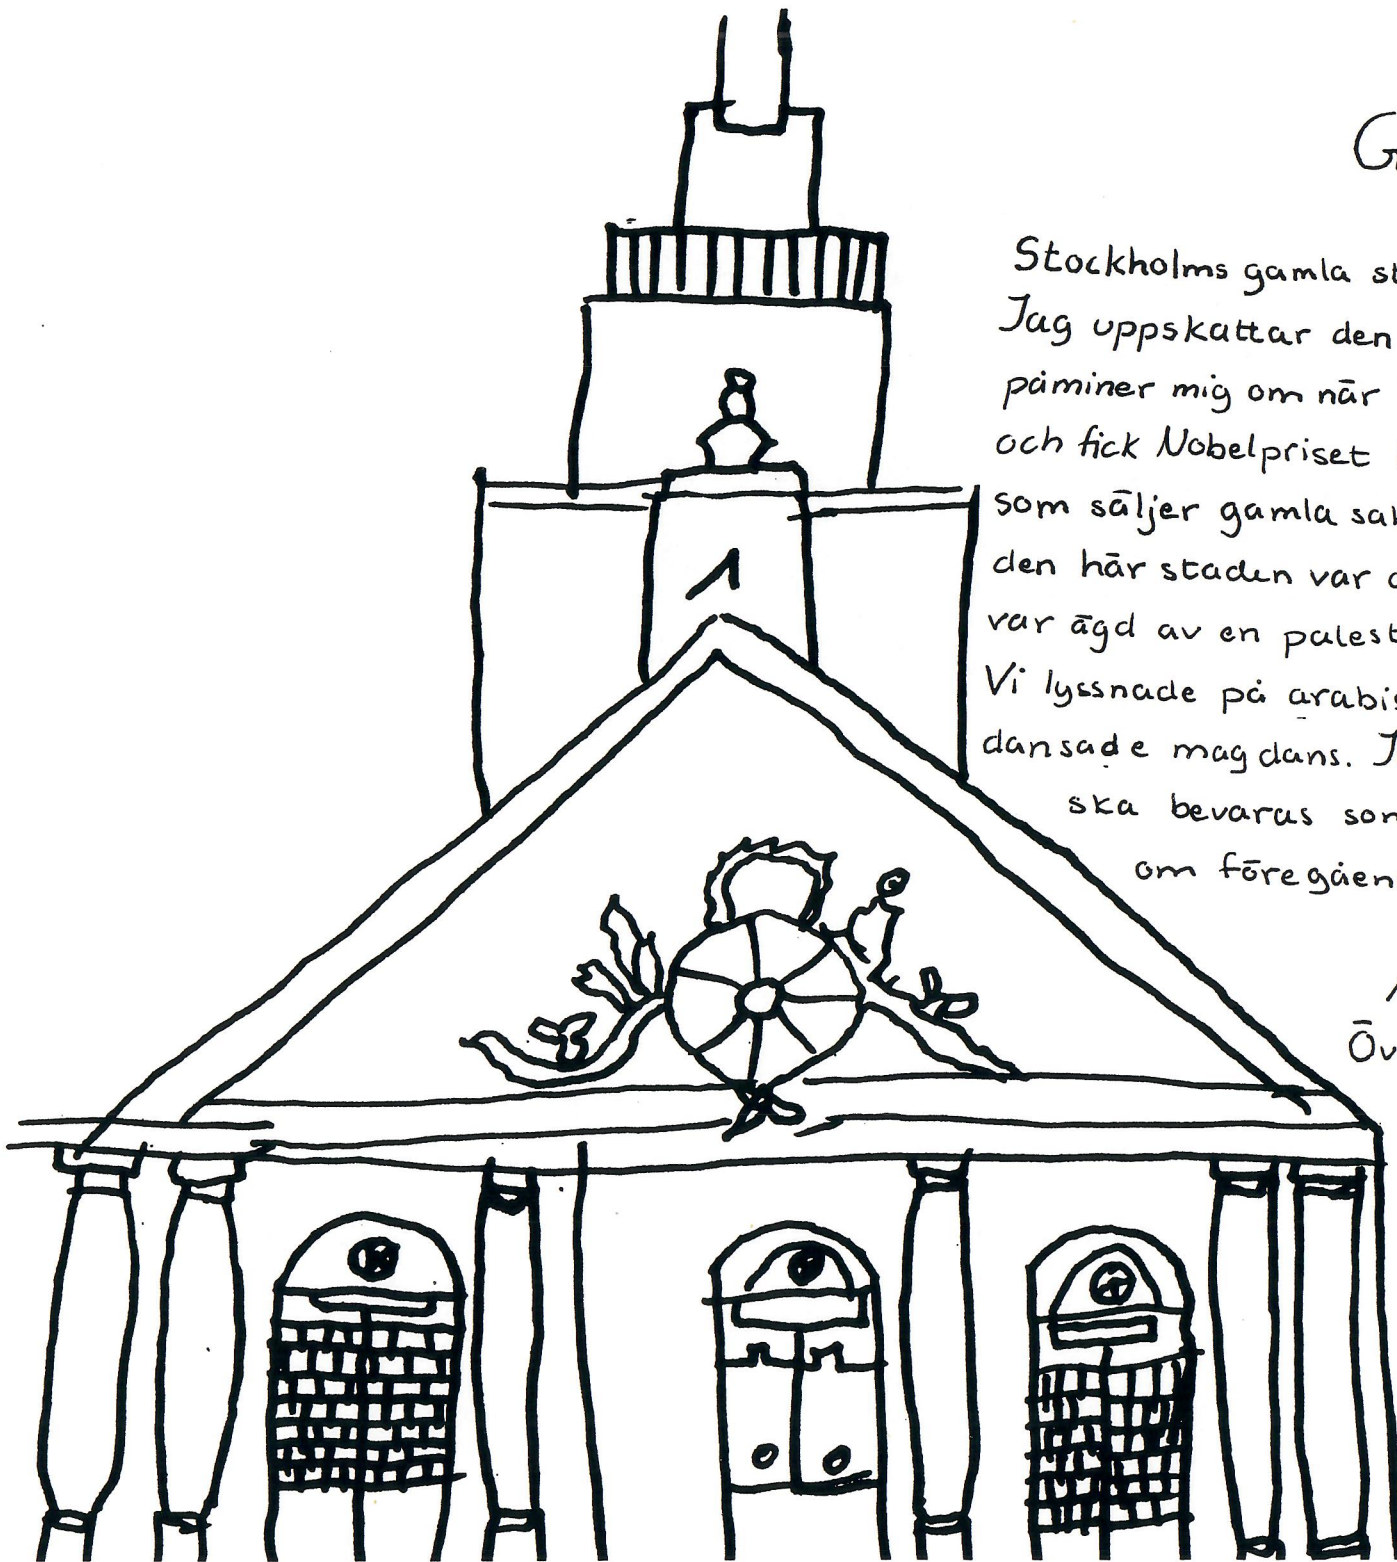 Stockholms gamla
Jag uppskattar den
påminer mig om när
och fick Nobelpriset
som säljer gamla
den här staden var
var ägd av en
Vi lyssnade på
dansade magdans.
ska bevaras
om
1